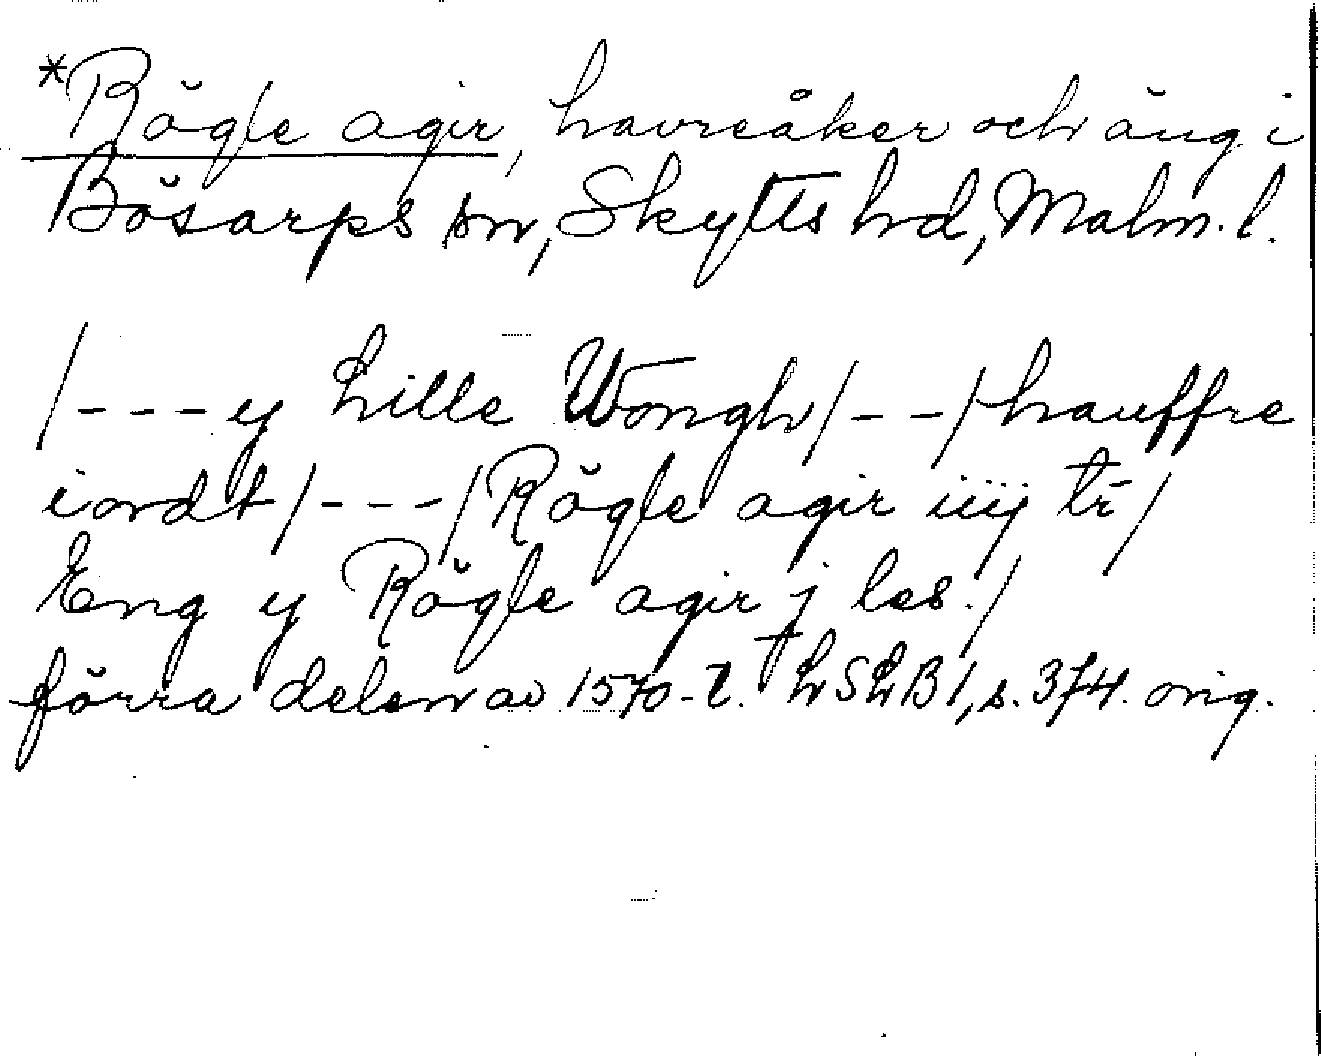 *Rögle agir, havreåker och äng i
Bösarps sn, Skytts hd, Malm. l.
/---y Lille Wongh/--/hauffre
iordt/---/Rögle agir iiij tr/
Eng y Rögle agir j les./
förra delen av 1570-t. LSLB1, s. 374. orig.